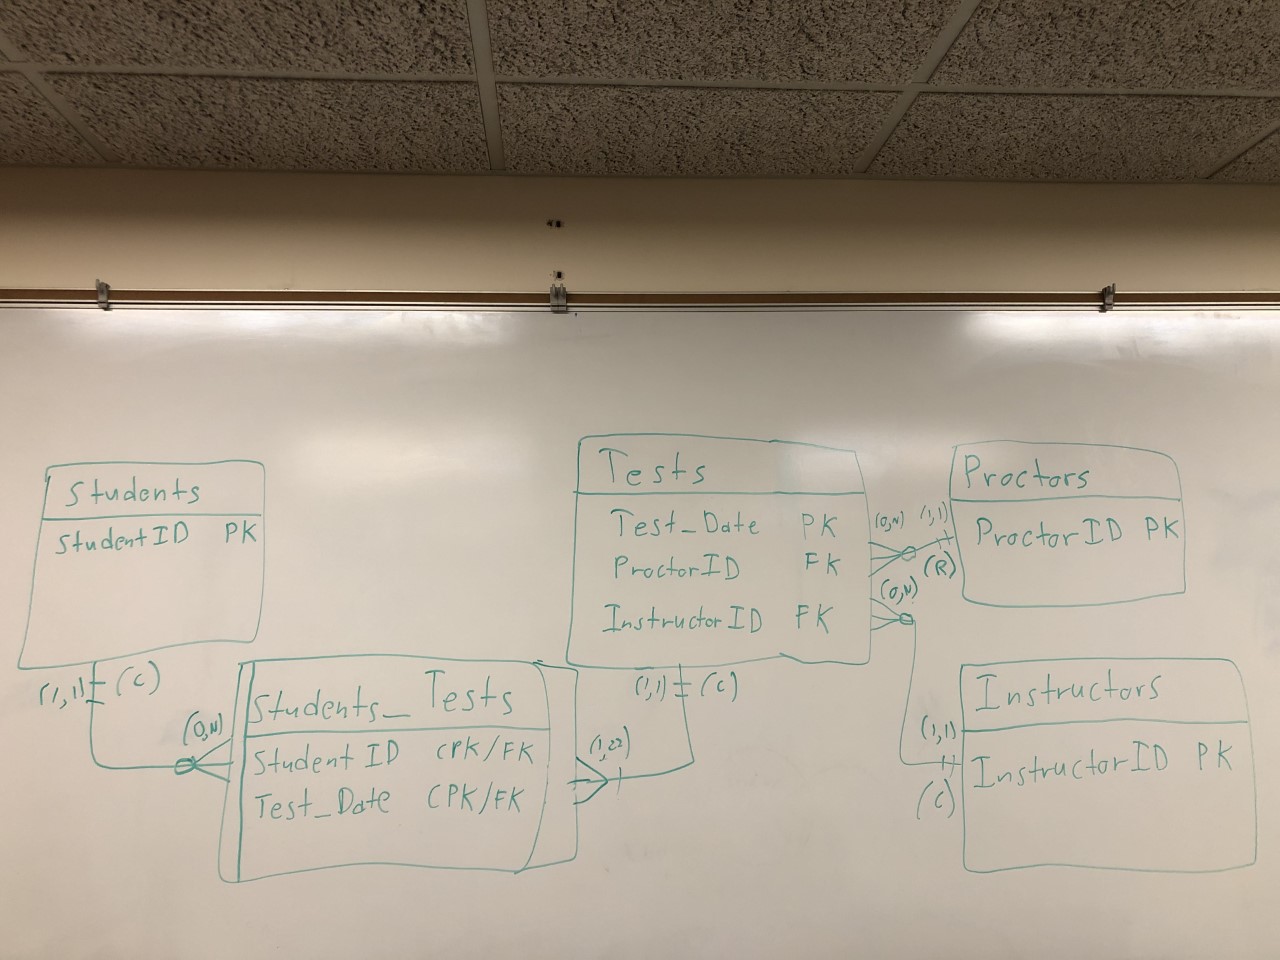 Students
StudentID PK
(1,1) (C)
(0,N)
Students_Tests
Student ID CPK/FK
Test_Date CPK/FK
(1,22)
(1,1) (C)
Tests
Test_Date PK
ProctorID FK
InstructorID FK
(0,N) (1,1)
(R)
(0,N)
Proctors
ProctorID PK
(1,1)
(C)
Instructors
InstructorID PK